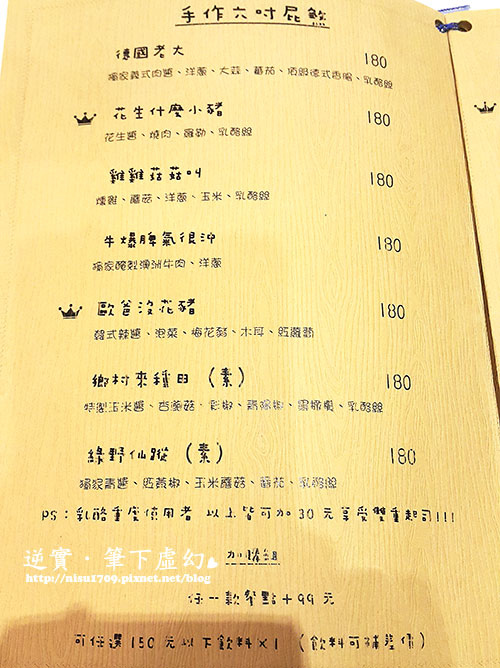 手作六吋屁颩
德國老大 180
獨家義式肉醬、洋蔥、大蒜、蕃茄、頂級德式香腸、乳酪絲
花生什麼小豬 180
花生醬、燒肉、羅勒、乳酪絲
雞雞菇菇叫 180
燻雞、蘑菇、洋蔥、玉米、乳酪絲
牛爆脾氣很沖 180
獨家醃製澳洲牛肉、洋蔥
歐爸沒花豬 180
韓式辣醬、泡菜、梅花豬、木耳、紅蘿蔔
鄉村來種田（素） 180
特製玉米醬、杏鮑菇、彩椒、青辣椒、黑橄欖、乳酪絲
綠野仙蹤（素） 180
獨家青醬、紅黃椒、玉米蘑菇、蕃茄、乳酪絲
PS：乳酪重度使用者 以上皆可加30元享受雙重起司!!!
逆實・筆下虛幻
http://nisu1709.pixnet.net/blog
加購組
任一款餐點+99元
可任選150元以下飲料x1（飲料可補差價）